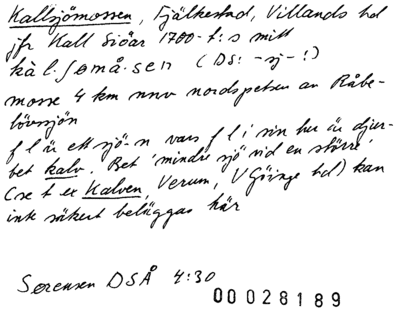 Kallsjömossen, Fjälkestad, Villands hd
jfr Kall Siöar 1700-t:s mitt
kàl.ʃømå.sen (DS: -sj-!)
mosse 4 km nnv nordspetsen av Råbe-
lövssjön
f l är ett sjö-n vars f l i sin tur är djur-
bet kalv. Bet 'mindre sjö vid en större'
(se t ex Kalven, Verum, V Göinge hd) kan
inte säkert beläggas här
Sørensen DSÅ 4:30
00028189